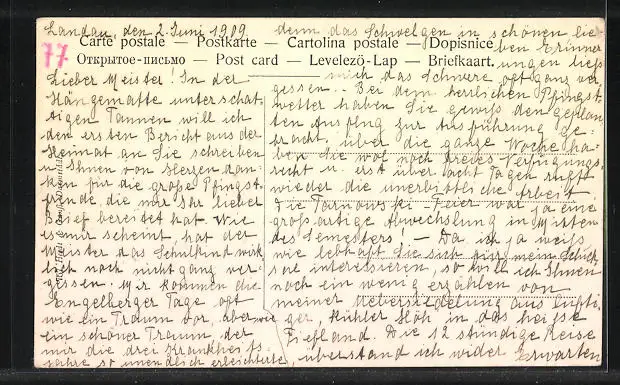 Landau, den 2. Juni 1909
77
Carte postale — Postkarte — Cartolina postale — Dopisnice
Открытое-письмо — Post card — Levelező-Lap — Briefkaart.
Lieber Meister! In der
Hängematte unterschat-
tigen Tannen will ich
den ersten Bericht aus der
Heimat an Sie schreiben
u. Ihnen von Herzen dan-
ken für die große Pfingst-
freude, die mir Ihr lieber
Brief bereitet hat. Wie
es mir scheint, hat der
Meister das Schulkind wirk-
lich noch nicht ganz ver-
gessen. Mir kommen die
Engelberger Tage oft
wie ein Traum vor, aber wie
ein schöner Traum, der
mir die drei Krankheits-
jahre so unendlich erleichterte,
denn das Schwelgen in schönen lie-
ben Erinner-
ungen ließ
mich das Schwere oft ganz ver-
gessen. - Bei dem herrlichen Pfingst-
wetter haben Sie gewiß den geplan-
ten Ausflug zur Ausführung ge-
bracht, über die ganze Woche ha-
ben Sie wol noch freies Verfügungs-
recht u. erst über acht Tagen ruft
wieder die unerbittliche Arbeit
Die Tarnowski-Feier war ja eine
großartige Abwechslung in Mitten
des Semesters! - Da ich ja weiß
wie lebhaft Sie sich für mein Schick-
sal interessieren, so will ich Ihnen
noch ein wenig erzählen von
meiner Uebersiedelung aus lufti-
ger, kühler Höh in das heiße
Tiefland. Die 12 stündige Reise
überstand ich wider Erwarten